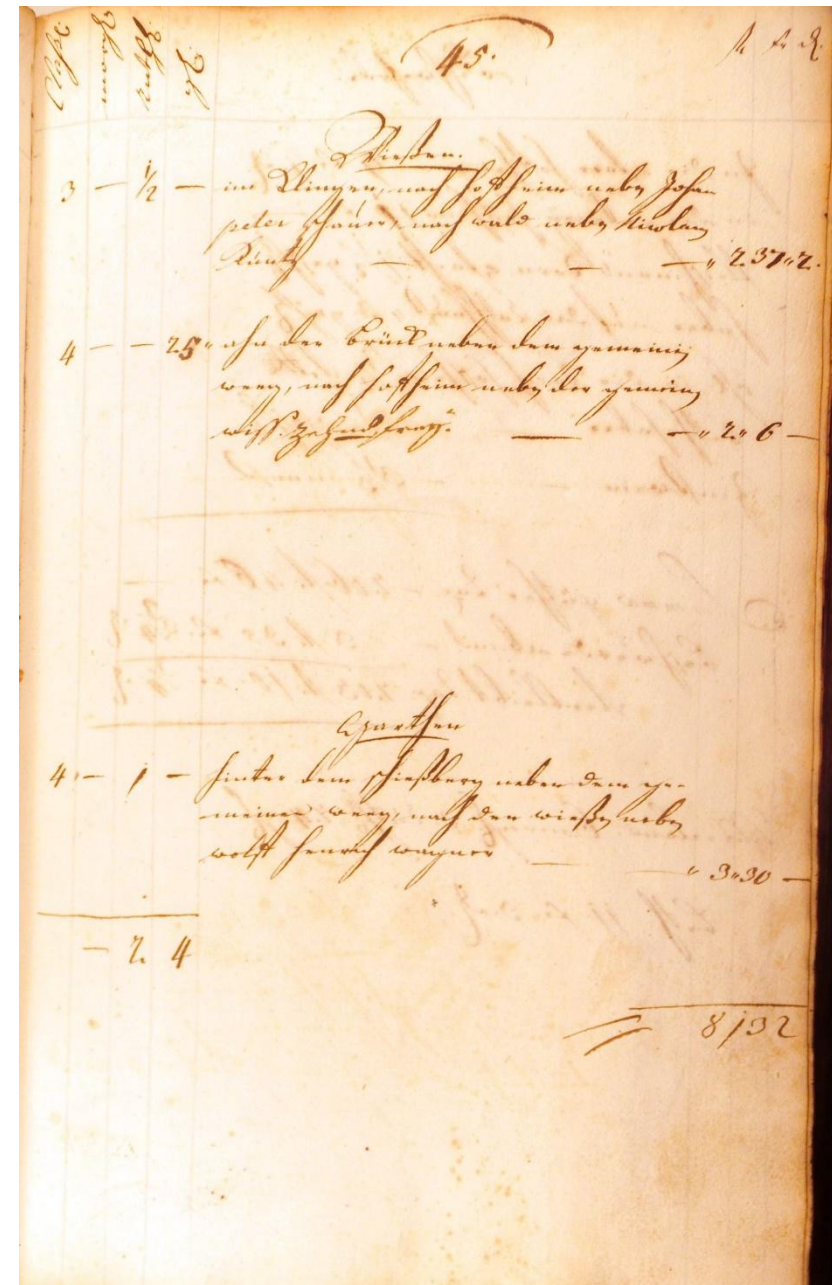 45.
Wießen.
3 — ½ — im Klingen, nach Hoffheim neben Johan
peter Schauer, nach wald neben Nicolaus
Kuntz — — — " 2. 37 " 2.
4 — — 25 " ahn der Brück neben dem gemeinen
weeg, nach Hoffheim neben der gemeinen
wiss. Zehend frey. — — " 2 " 6 —
Garthen
4. — 1 — hinter dem schießberg neben dem ge-
meinen weeg, nach den wießen neben
wolff Henrich wagner — — " 3 " 30 —
— 2. 4
8 13 2